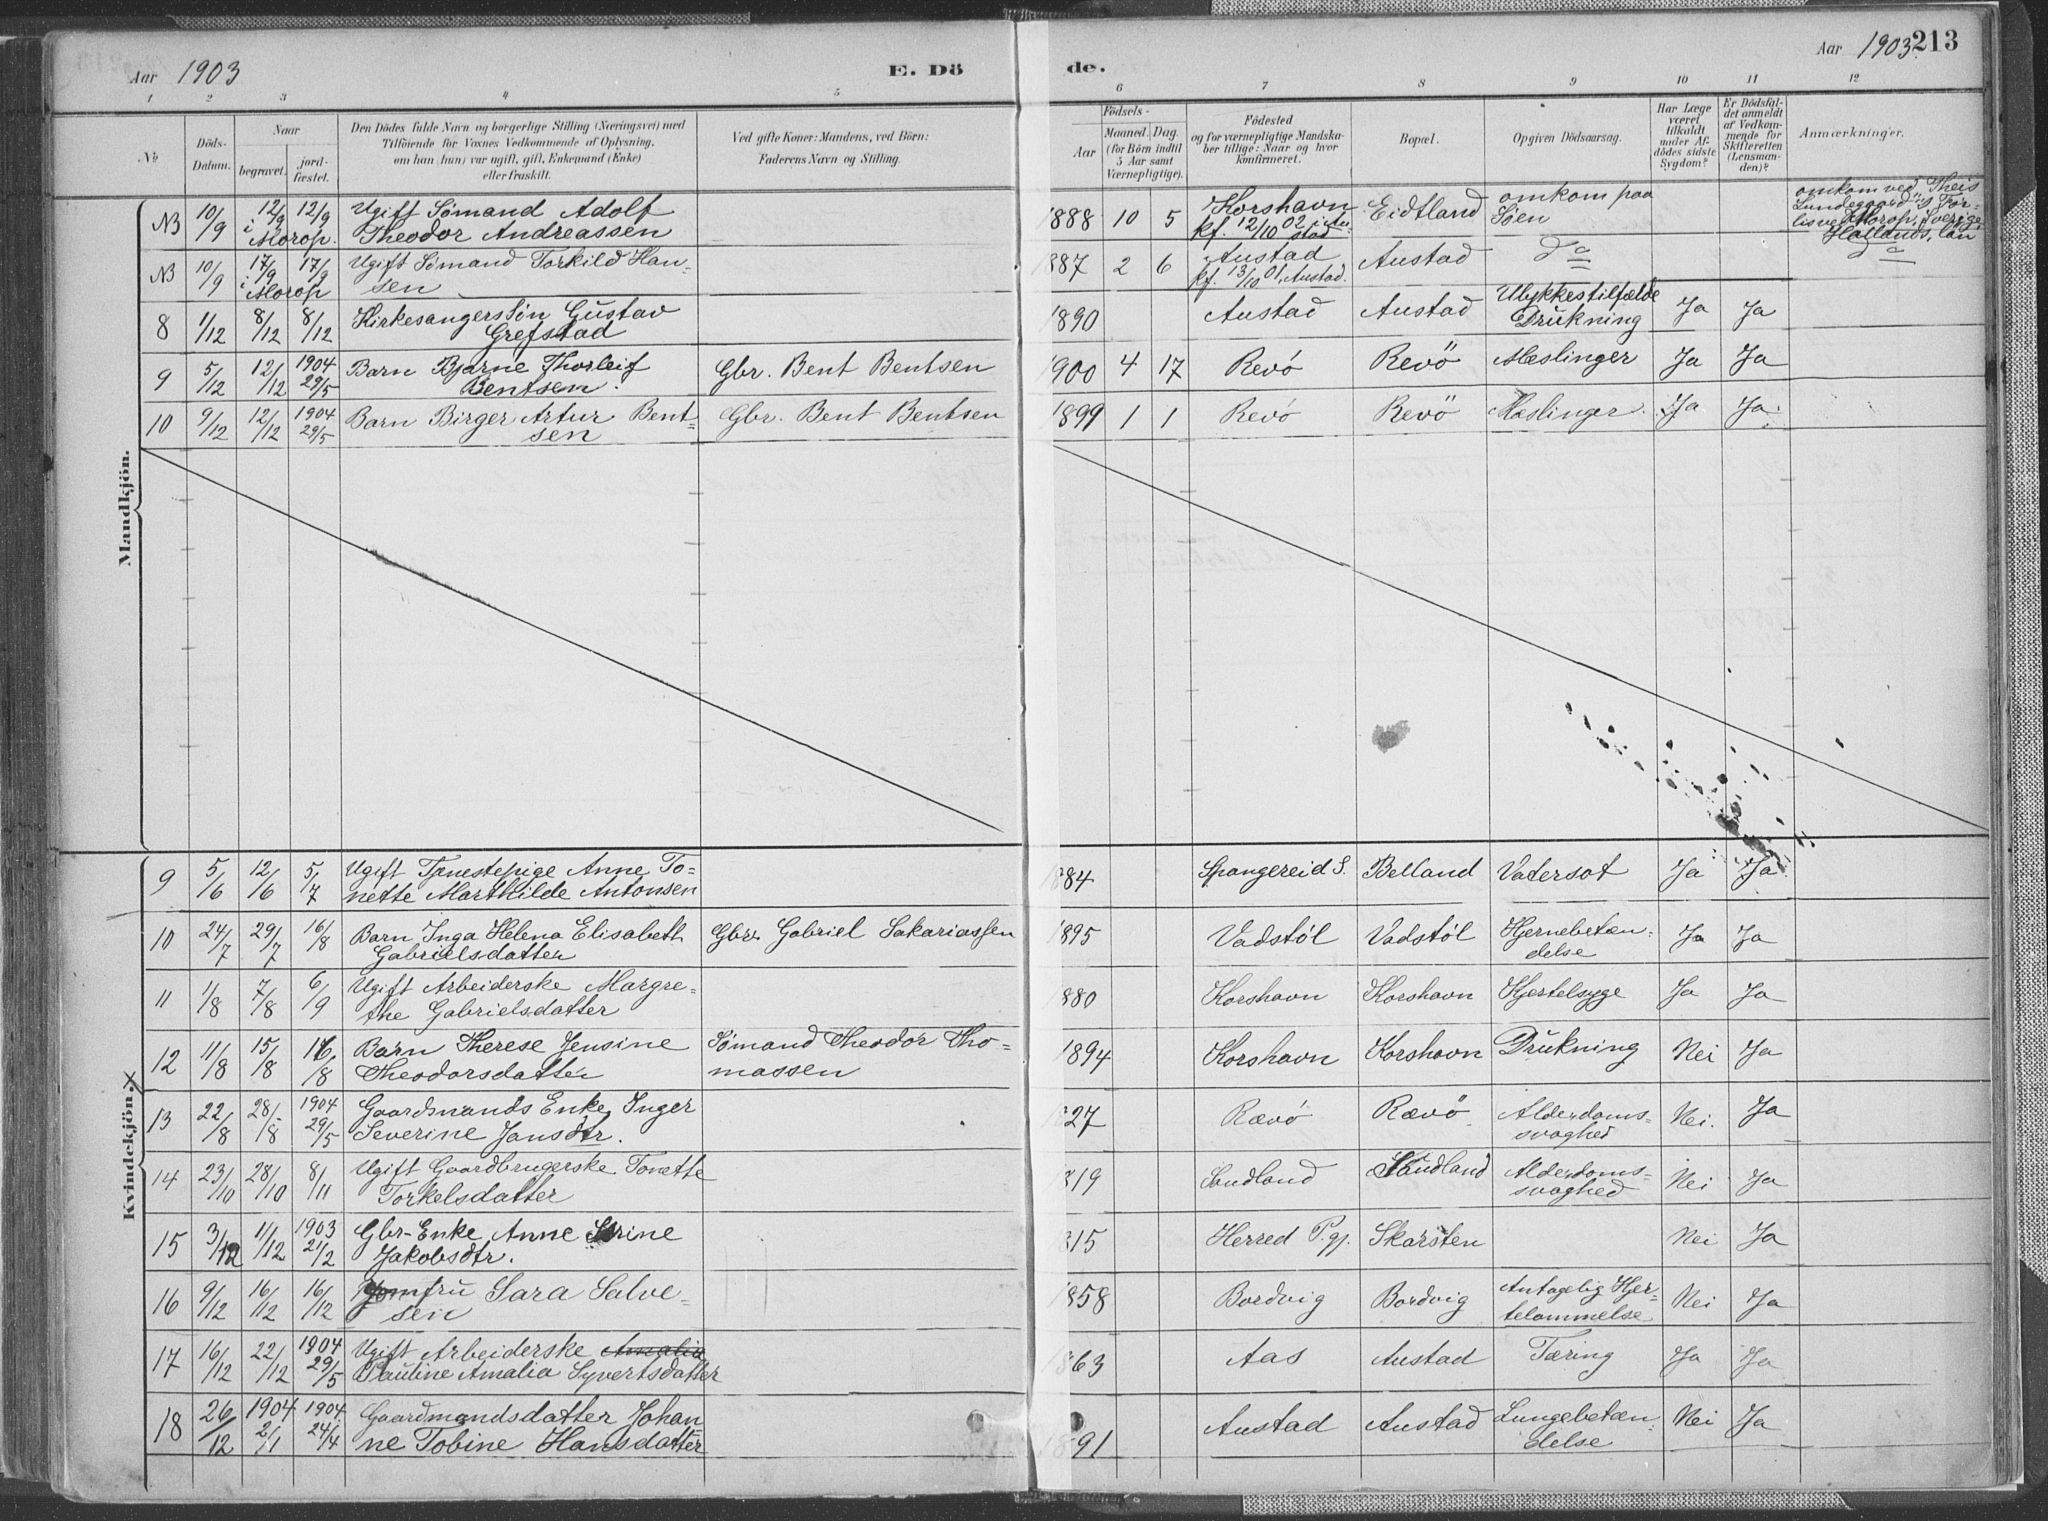 Aar 1903
E. Dö
de.
Aar 1903
213
1 2 3 4 5 6 7 8 9 10 11 12
No
Döds-Datum.
Naar
begravet.
jord-fæstet.
Den Dödes fulde Navn og borgerlige Stilling (Næringsvei) med
Tilföiende for Voxnes Vedkommende af Oplysning,
om han (hun) var ugift, gift, Enkemand (Enke)
eller fraskilt.
Ved gifte Koner: Mandens, ved Börn:
Faderens Navn og Stilling.
Födsels-
Aar
Maaned. Dag.
(for Börn indtil
5 Aar samt
Værnepligtige).
Födested
og for værnepligtige Mandska-
ber tillige: Naar og hvor
konfirmeret.
Bopæl.
Opgiven Dödsaarsag.
Har Læge
været
tilkaldt
under Af-
dödes sidste
Sygdom?
Er Dödsfal-
det anmeldt
af Vedkom-
mende for
Skifteretten
(Lensman-
den)?
Anmærkninger.
Mandkjön.
NB 10/9 12/9 i Morop. 12/9 Ugift Sömand Adolf
Theodor Andreassen
1888 10 5 Korshavn kf. 12/10 02 i Au-stad Eidtland omkom paa
Söen
omkom ved "Theis
Lundegaard"s For-
lis ved Morop, Sverige,
Hallands län
NB 10/9 17/9 i Morop 17/9 Ugift Sömand Torkild Han-
sen
1887 2 6 Austad kf. 13/10 01, Austad. Austad do do
8 1/12 8/12 8/12 Kirkesangers Sön Gustav
Grefstad
1890 Austad Austad Ulykkestilfælde
Drukning Ja Ja
9 5/12 12/12 1904 29/5 Barn Bjarne Thorleif
Bentsen. Gbr. Bent Bentsen 1900 4 17 Revö Revö Mæslinger Ja Ja
10 9/12 12/12 1904 29/5 Barn Birger Artur Bent-
sen Gbr. Bent Bentsen 1899 1 1 Revö Revö Mæslinger. Ja Ja.
Kvindekjön.
9 5/6 12/6 5/7 Ugift Tjenestepige Anne To-
nette Marthilde Antonsen 1884 Spangereid S. Belland Vatersot Ja Ja
10 24/7 29/7 16/8 Barn Inga Helena Elisabeth
Gabrielsdatter Gbr. Gabriel Sakariassen 1895 Vadstöl Vadstöl Hjernebetæn-
delse Ja Ja
11 1/8 7/8 6/9 Ugift Arbeiderske Margre-
the Gabrielsdatter 1880 Korshavn Korshavn Kjertelsyge Ja Ja
12 11/8 15/8 16/8 Barn Therese Jensine
Theodorsdatter Sömand Theodor Tho-
massen 1894 Korshavn Korshavn Drukning Nei Ja
13 22/8 28/8 1904 29/5 Gaardmands Enke, Inger
Severine Jansdtr. 1827 Rævö Rævö Alderdoms-
svaghed Nei. Ja
14 23/10 28/10 8/11 Ugift Gaardbrugerske Tonette
Torkelsdatter 1819 Sandland Sandland Alderdoms-
svaghed Nei Ja
15 3/12 11/12 1903 21/2 Gbr-Enke, Anne Serine
Jakobsdtr. 1815 Herred P.gj. Skarsten Nei Ja
16 9/12 16/12 16/12 Jomfru Sara Salve-
sen 1858 Bordvig Bordvig Antagelig Hjer-
telammelse Nei Ja
17 16/12 22/12 1904 29/5 Ugift Arbeiderske Amalia
Pauline Amalia Syvertsdatter 1863 Aas Austad Tæring Ja Ja
18 26/12 1904 2/1 1904 24/4 Gaardmandsdatter Johan-
ne Tobine Hansdatter 1891 Austad Austad Lungebetæn-
delse Nei Ja